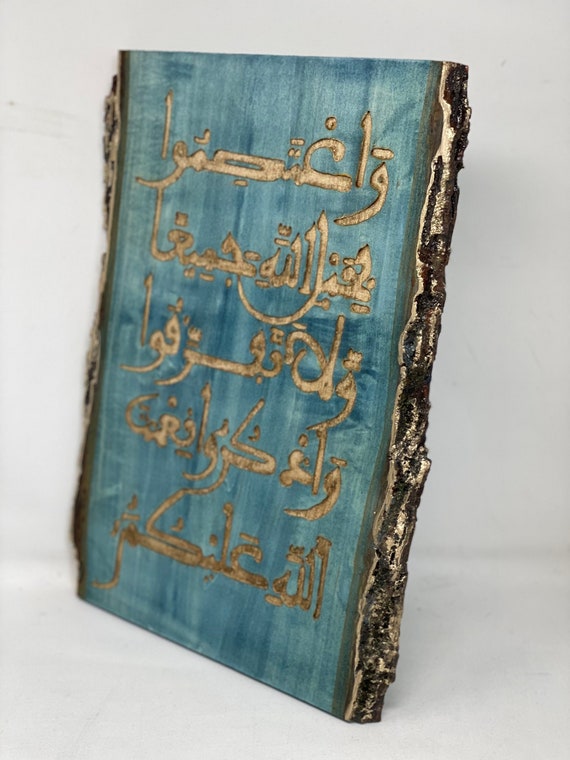 وَاعْتَصِمُوا
بِحَبْلِ اللَّهِ جَمِيعًا
وَلَا تَفَرَّقُوا
وَاذْكُرُوا نِعْمَتَ
اللَّهِ عَلَيْكُمْ